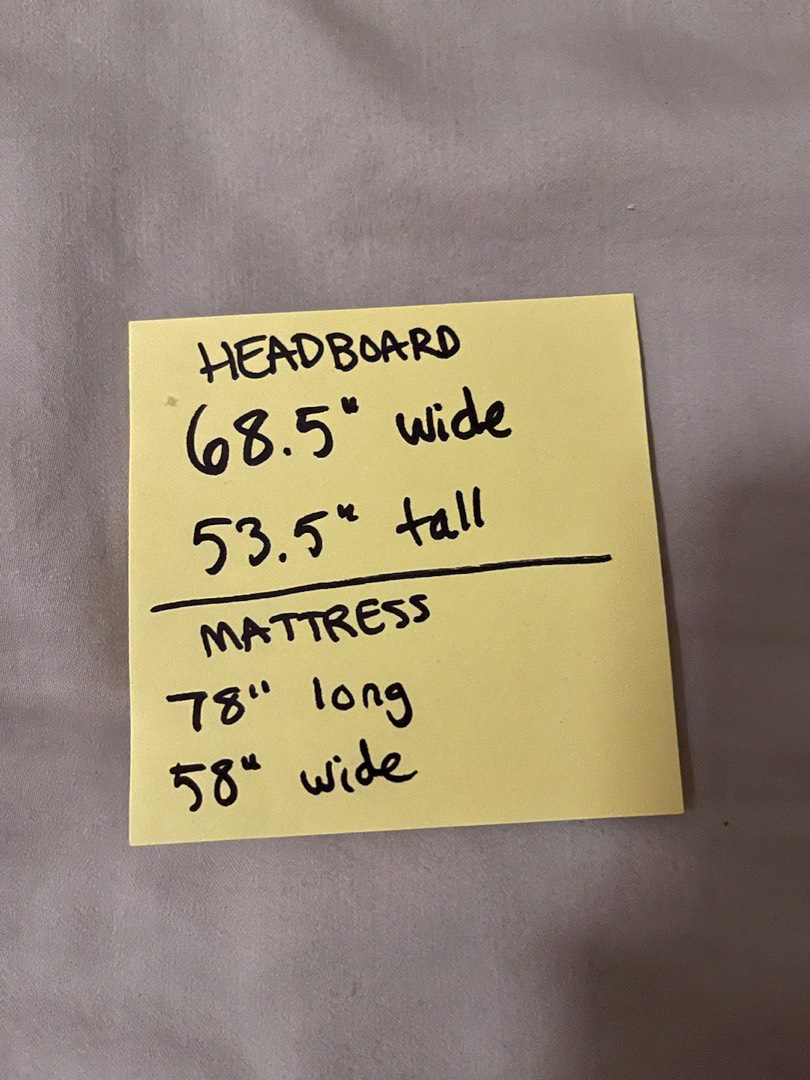 HEADBOARD
68.5" wide
53.5" tall
MATTRESS
78" long
58" wide